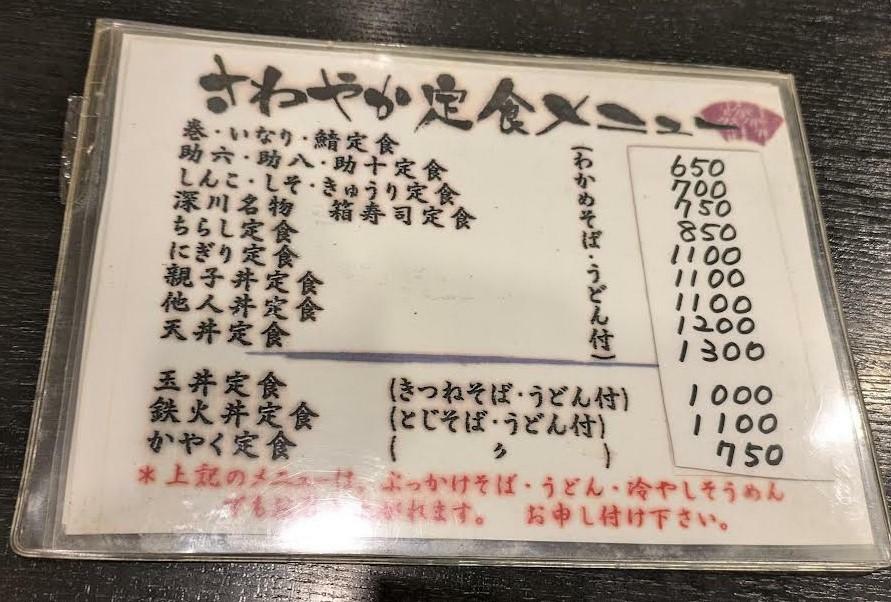 さわやか定食メニュー
巻・いなり・鯖定食 650
助六・助八・助十定食 700
しんこ・しそ・きゅうり定食 750
深川名物 箱寿司定食 850
ちらし定食 1100
にぎり定食 1100
親子丼定食 1100
他人丼定食 1200
天丼定食 1300
(わかめそば・うどん付)
玉丼定食 (きつねそば・うどん付) 1000
鉄火丼定食 (とじそば・うどん付) 1100
かやく定食 ( 〃 ) 750
*上記のメニューは、ぶっかけそば・うどん・冷やしそうめん
でもお がれます。 お申し付け下さい。